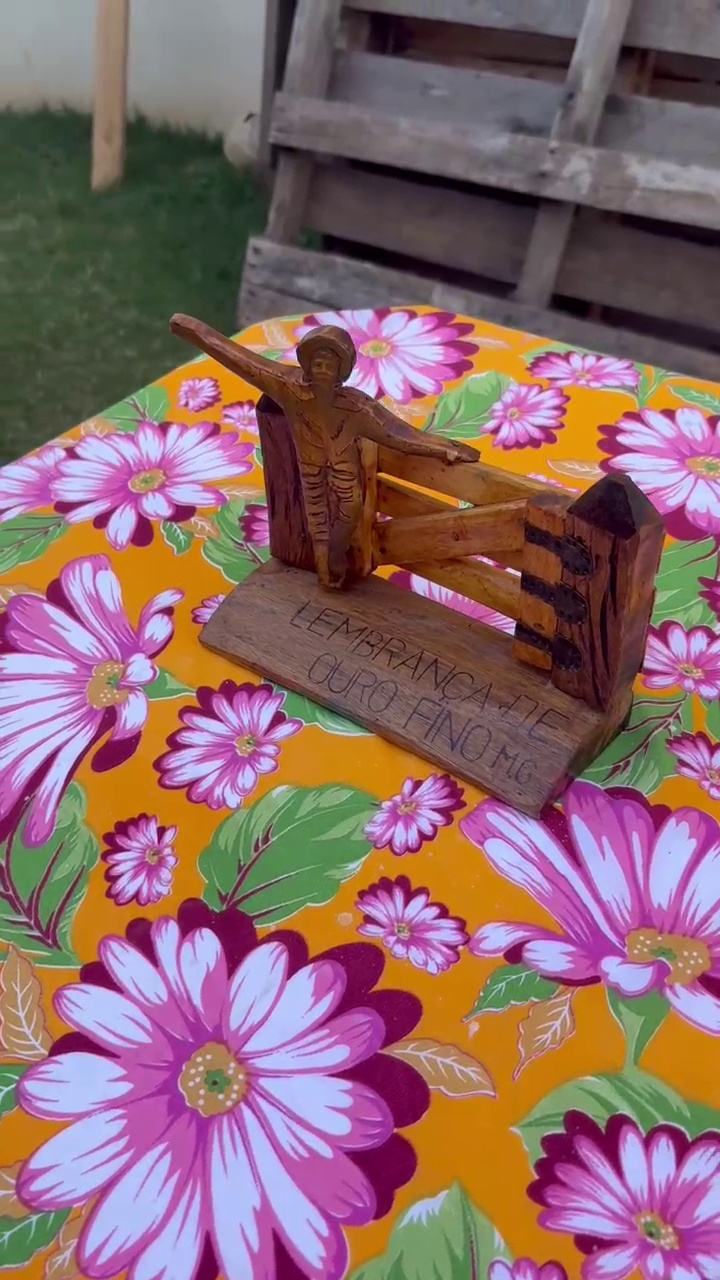 LEMBRANÇA DE
OURO FINO MG